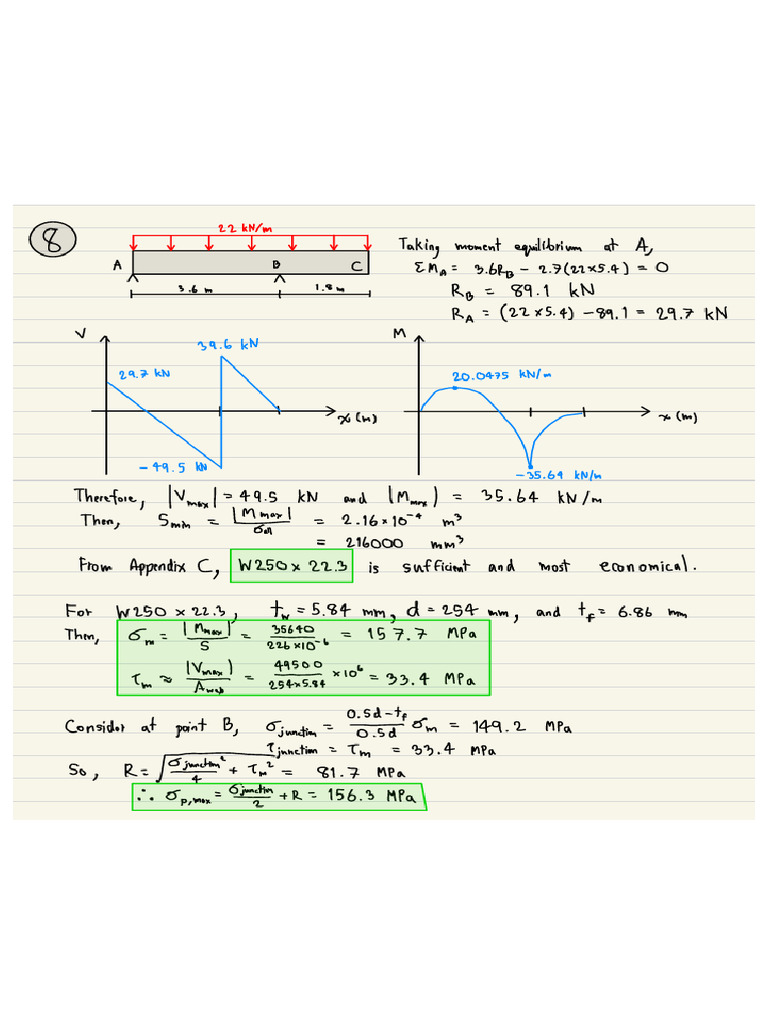 8
22 kN/m
A B C
3.6 m 1.8 m
Taking moment equilibrium at A,
ΣM_A = 3.6R_B - 2.7(22×5.4) = 0
R_B = 89.1 kN
R_A = (22×5.4) - 89.1 = 29.7 kN
V
39.6 kN
29.7 kN
x (m)
-49.5 kN
M
20.0475 kN/m
x (m)
-35.64 kN/m
Therefore, |V_max| = 49.5 kN and |M_max| = 35.64 kN/m
Then, S_min = |M_max| / σ_all = 2.16×10^-4 m^3
= 216000 mm^3
From Appendix C, W250 × 22.3 is sufficient and most economical.
For W250 × 22.3, t_w = 5.84 mm, d = 254 mm, and t_f = 6.86 mm
Then, σ_m = |M_max| / S = 35640 / 226×10^-6 = 157.7 MPa
τ_m ≈ |V_max| / A_web = 49500 / 254×5.84 ×10^6 = 33.4 MPa
Consider at point B, σ_junction = 0.5d-t_f / 0.5d σ_m = 149.2 MPa
τ_junction = τ_m = 33.4 MPa
So, R = √(σ_junction^2 / 4 + τ_m^2) = 81.7 MPa
∴ σ_p,max = σ_junction / 2 + R = 156.3 MPa